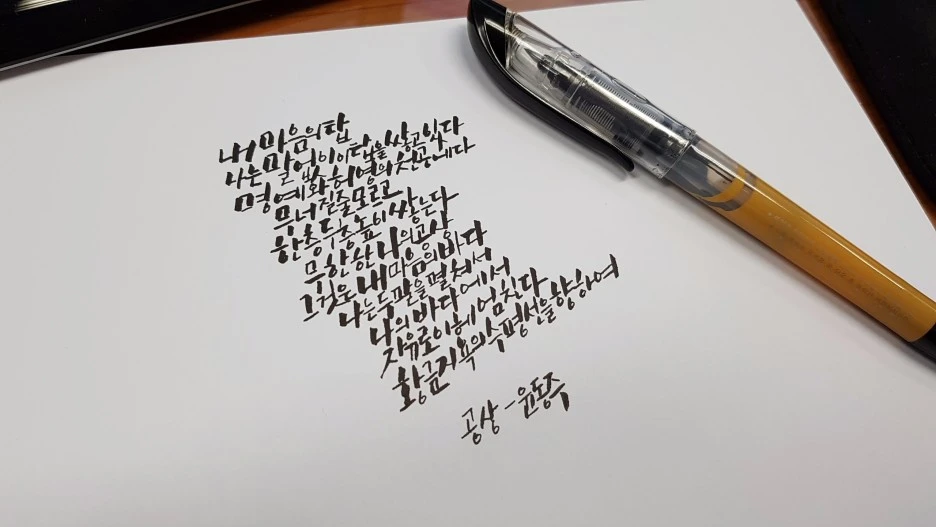 내 마음의 탑
나는 말없이 이 탑을 쌓고 있다
명예와 허영의 천공에다
무너질줄모르고
한층두층높이쌓는다
무한한 나의 공상
그것은 내 마음의 바다
나는 두 팔을 펼쳐서
나의 바다에서
자유로이 헤엄친다
황금지욕의 수평선을 향하여
공상 - 윤동주